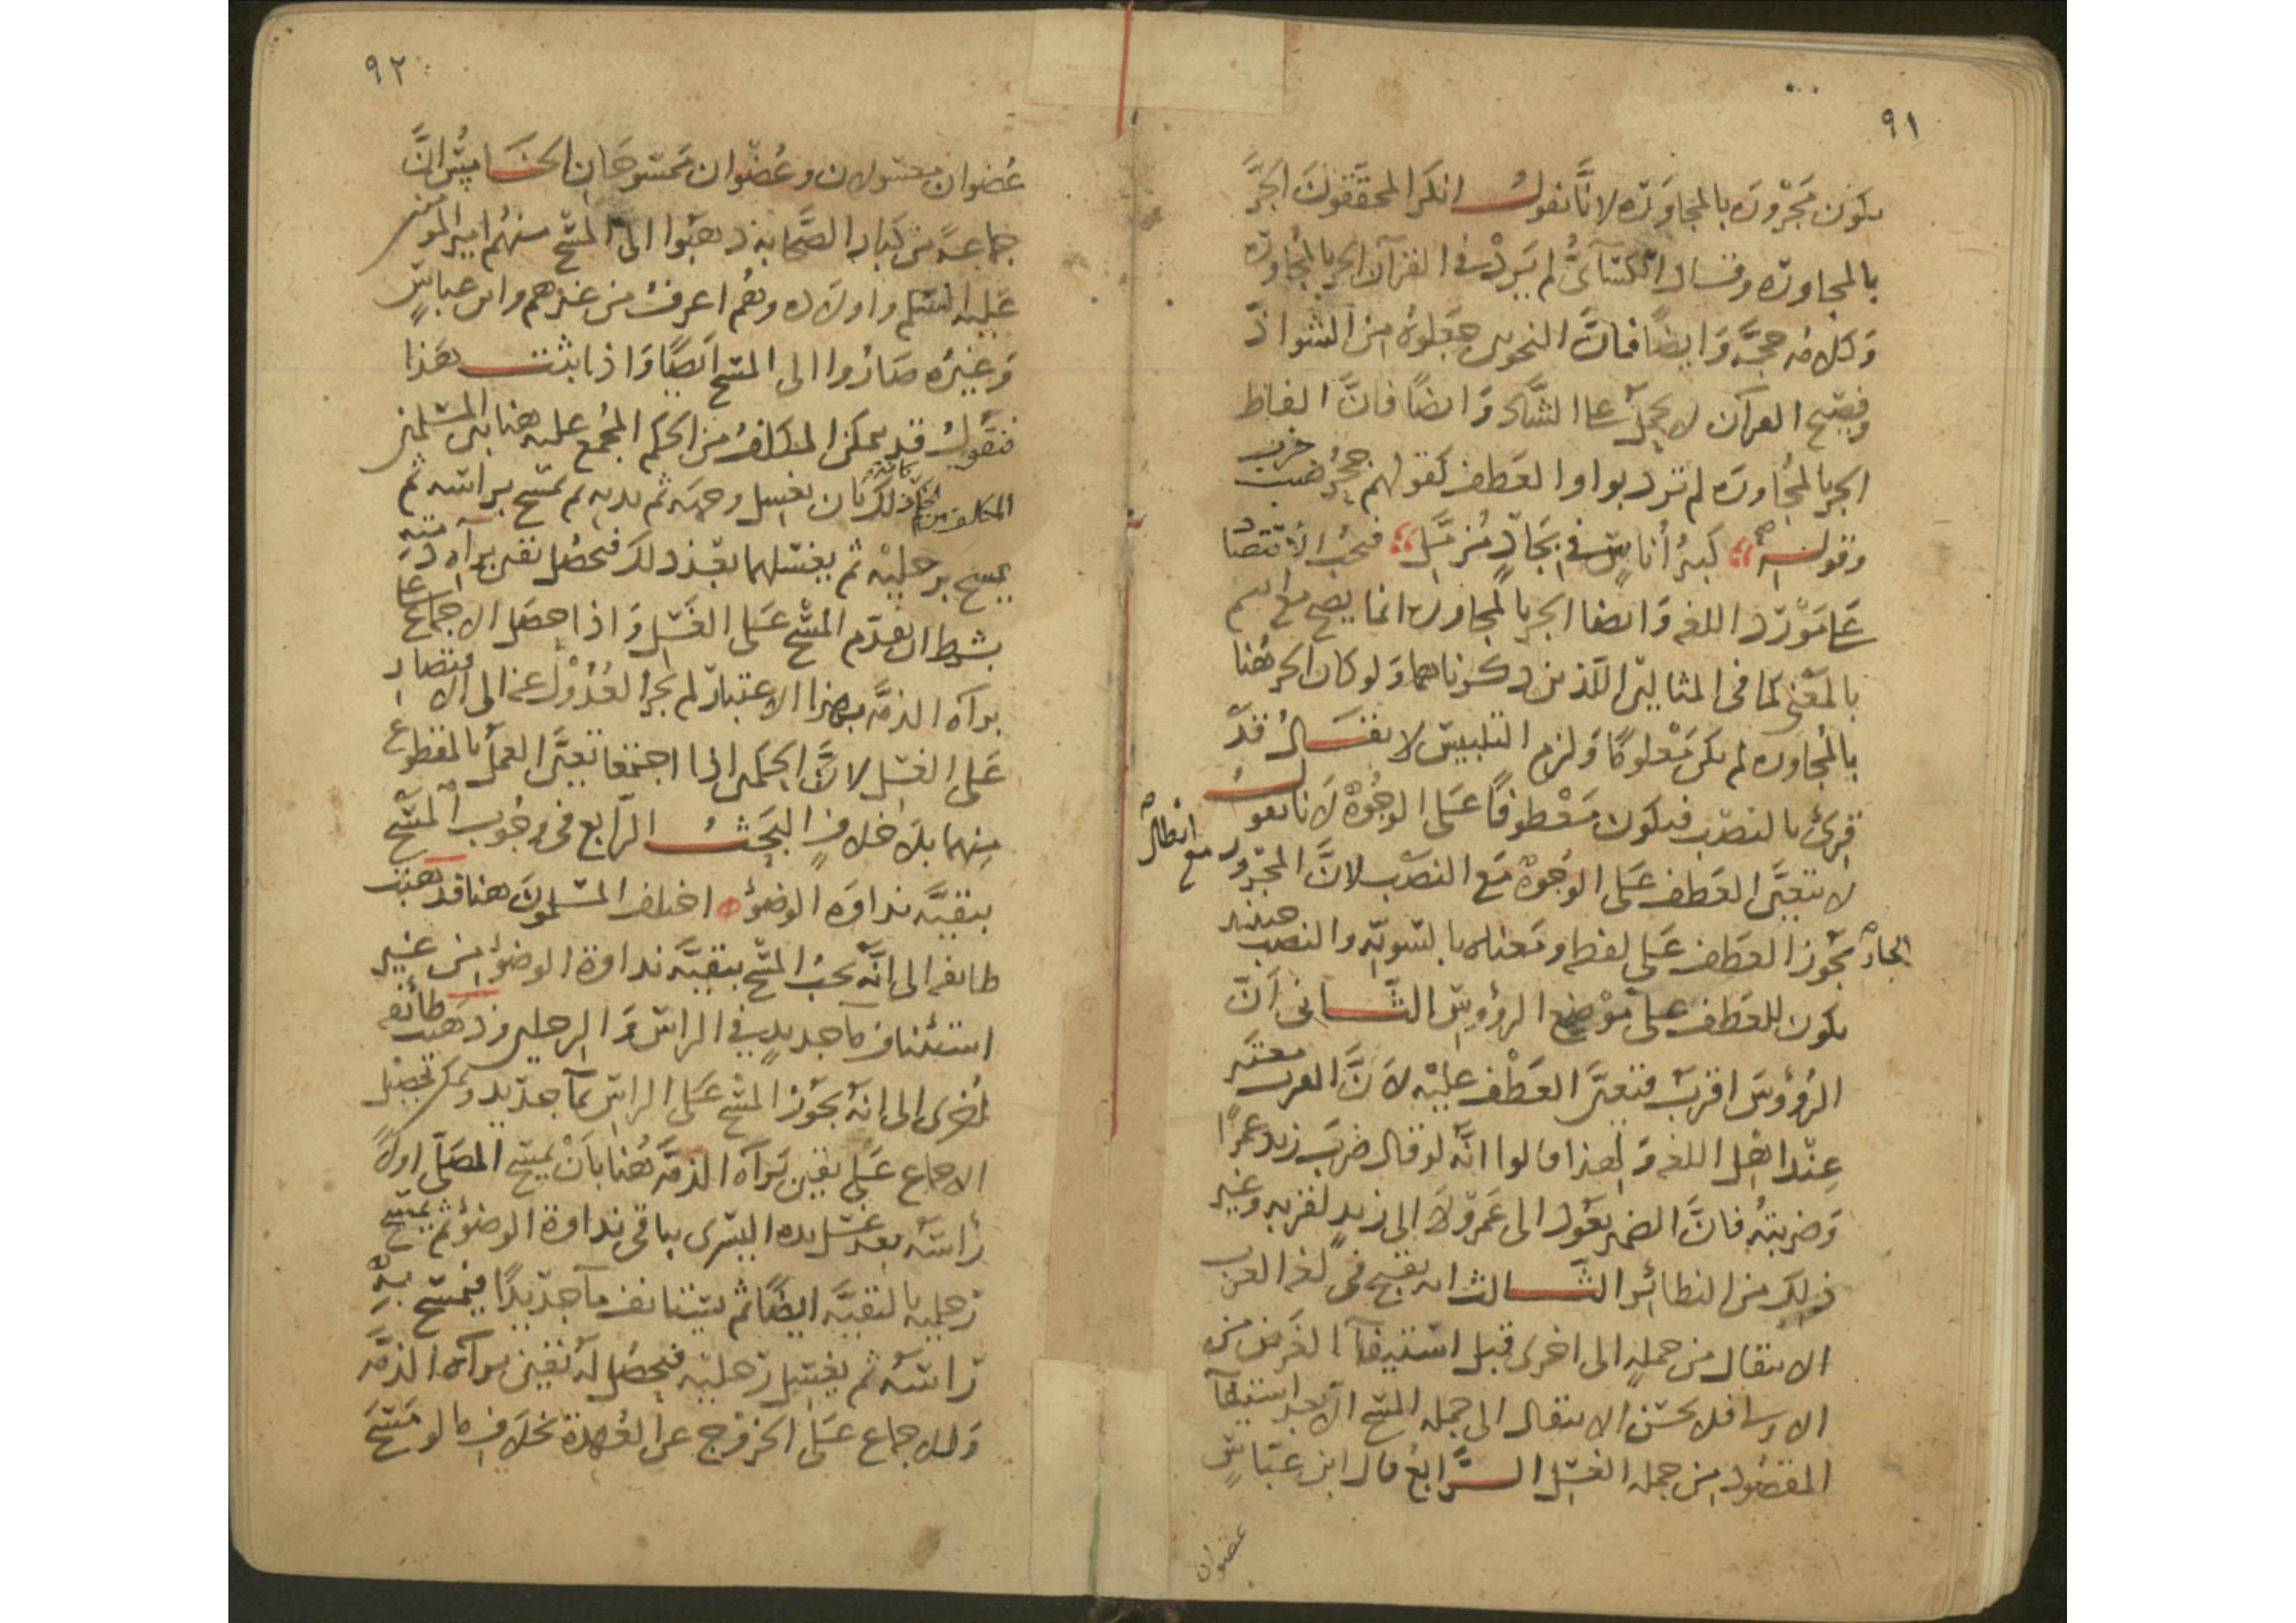 ٩١
يكون مجرورة بالمجاورة لانا نقول انكر المحققون الجر
بالمجاورة وقال الكسائى لم يرد فى القرآن الجر بالمجاورة
وكلامه حجة وايضا فان النحويين جعلوه من الشواذ
وفصيح القرآن لا يحمل على الشاذ وايضا فان الفاظ
الجر بالمجاورة لم ترد بواو العطف كقولهم جحر ضب خرب
وقوله كبير أناس فى بجاد مزمل فيجب الاقتصار
على مورد اللغة وايضا الجر بالمجاورة انما يصح مع
بالمعنى كما فى المثالين اللذين ذكرناهما ولو كان الجر هنا
بالمجاورة لم يكن معلوما ولزم التلبيس لا يقال قد
قرئ بالنصب فيكون معطوفا على الوجوه لانا نقول
لا يتعين العطف على الوجوه مع النصب لان المجرور مع ابطال
الجار يجوز العطف على لفظه ومعناه بالسوية والنصب حينئذ
يكون للعطف على موضع الرؤوس الثانى ان
الرؤوس اقرب فتعين العطف عليه لان القرب معتبر
عند اهل اللغة ولهذا قالوا انه لو قال ضرب زيد عمرا
وضربته فان الضمير يعود الى عمرو لا الى زيد لقربه وغير
ذلك من النظائر الثالث انه يقبح فى لغة العرب
الانتقال من جملة الى اخرى قبل استيفاء الغرض من
الاولى فلا يحسن الانتقال الى جملة المسح الا بعد استيفاء
المقصود من جملة الغسل الرابع قال ابن عباس
عضوان
٩٢
عضوان مغسولان وعضوان ممسوحان الخامس ان
جماعة من كبار الصحابة ذهبوا الى المسح منهم امير المؤمنين
عليه السلم واولاده وهم اعرف من غيرهم وابن عباس
وغيره صاروا الى المسح ايضا واذا ثبت هذا
فنقول قد يمكن المكلف من الحكم المجمع عليه هنا بين المسلمين
المكلف من ذلك بان يغسل وجهه ثم يديه ثم يمسح براسه ثم
يمسح برجليه ثم يغسلهما بعد ذلك فيحصل يقين براءة ذمته
بشرط ان يقدم المسح على الغسل واذا حصل الاجماع على
براءة الذمة بهذا الاعتبار لم يجز العدول عنه الى الاقتصار
على الغسل لان الحكمين اذا اجتمعا تعين العمل بالمقطوع
منهما بلا خلاف البحث الرابع فى وجوب المسح
ببقية نداوة الوضوء اختلف المسلمون هنا فذهبت
طائفة الى انه يجب المسح ببقية نداوة الوضوء من غير
استئناف ماء جديد فى الراس والرجلين وذهبت طائفة
أخرى الى انه يجوز المسح على الراس بماء جديد ويمكن تحصيل
الاجماع على يقين براءة الذمة هنا بأن يمسح المصلى اولا
رأسه بعد غسل يده اليسرى بباقى نداوة الوضوء ثم يمسح
رجليه بالبقية ايضا ثم يستانف ماء جديدا فيمسح به
راسه ثم يغسل رجليه فيحصل له يقين براءة الذمة
والاجماع على الخروج عن العهدة بخلاف ما لو مسح